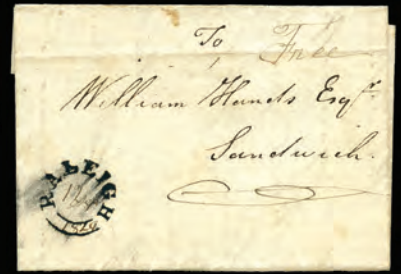 To Free
William Hands Esqr.
Sandwich.
RALEIGH